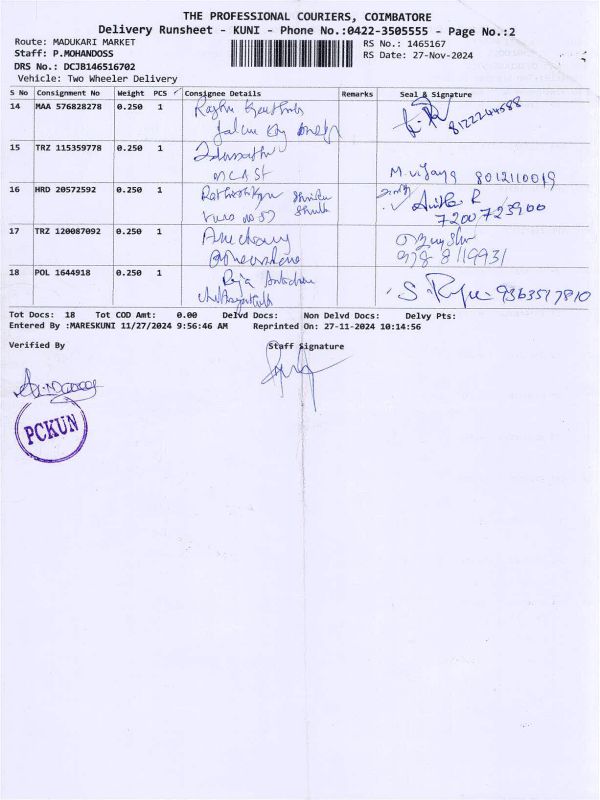 THE PROFESSIONAL COURIERS, COIMBATORE
Delivery Runsheet - KUNI - Phone No.:0422-3505555 - Page No.:2
Route: MADUKARI MARKET
RS No.: 1465167
Staff: P.MOHANDOSS
RS Date: 27-Nov-2024
DRS No.: DCJB146516702
Vehicle: Two Wheeler Delivery
S No Consignment No Weight PCS Consignee Details Remarks Seal & Signature
14 MAA 576828278 0.250 1
8122244588
15 TRZ 115359778 0.250 1
M. vijaya 8012110019
16 HRD 20572592 0.250 1
Anitha R
7200723900
17 TRZ 120087092 0.250 1
18 POL 1644918 0.250 1 Raja
S. 9363517810
Tot Docs: 18 Tot COD Amt: 0.00 Delvd Docs: Non Delvd Docs: Delvy Pts:
Entered By :MARESKUNI 11/27/2024 9:56:46 AM Reprinted On: 27-11-2024 10:14:56
Verified By Staff Signature
PCKUN